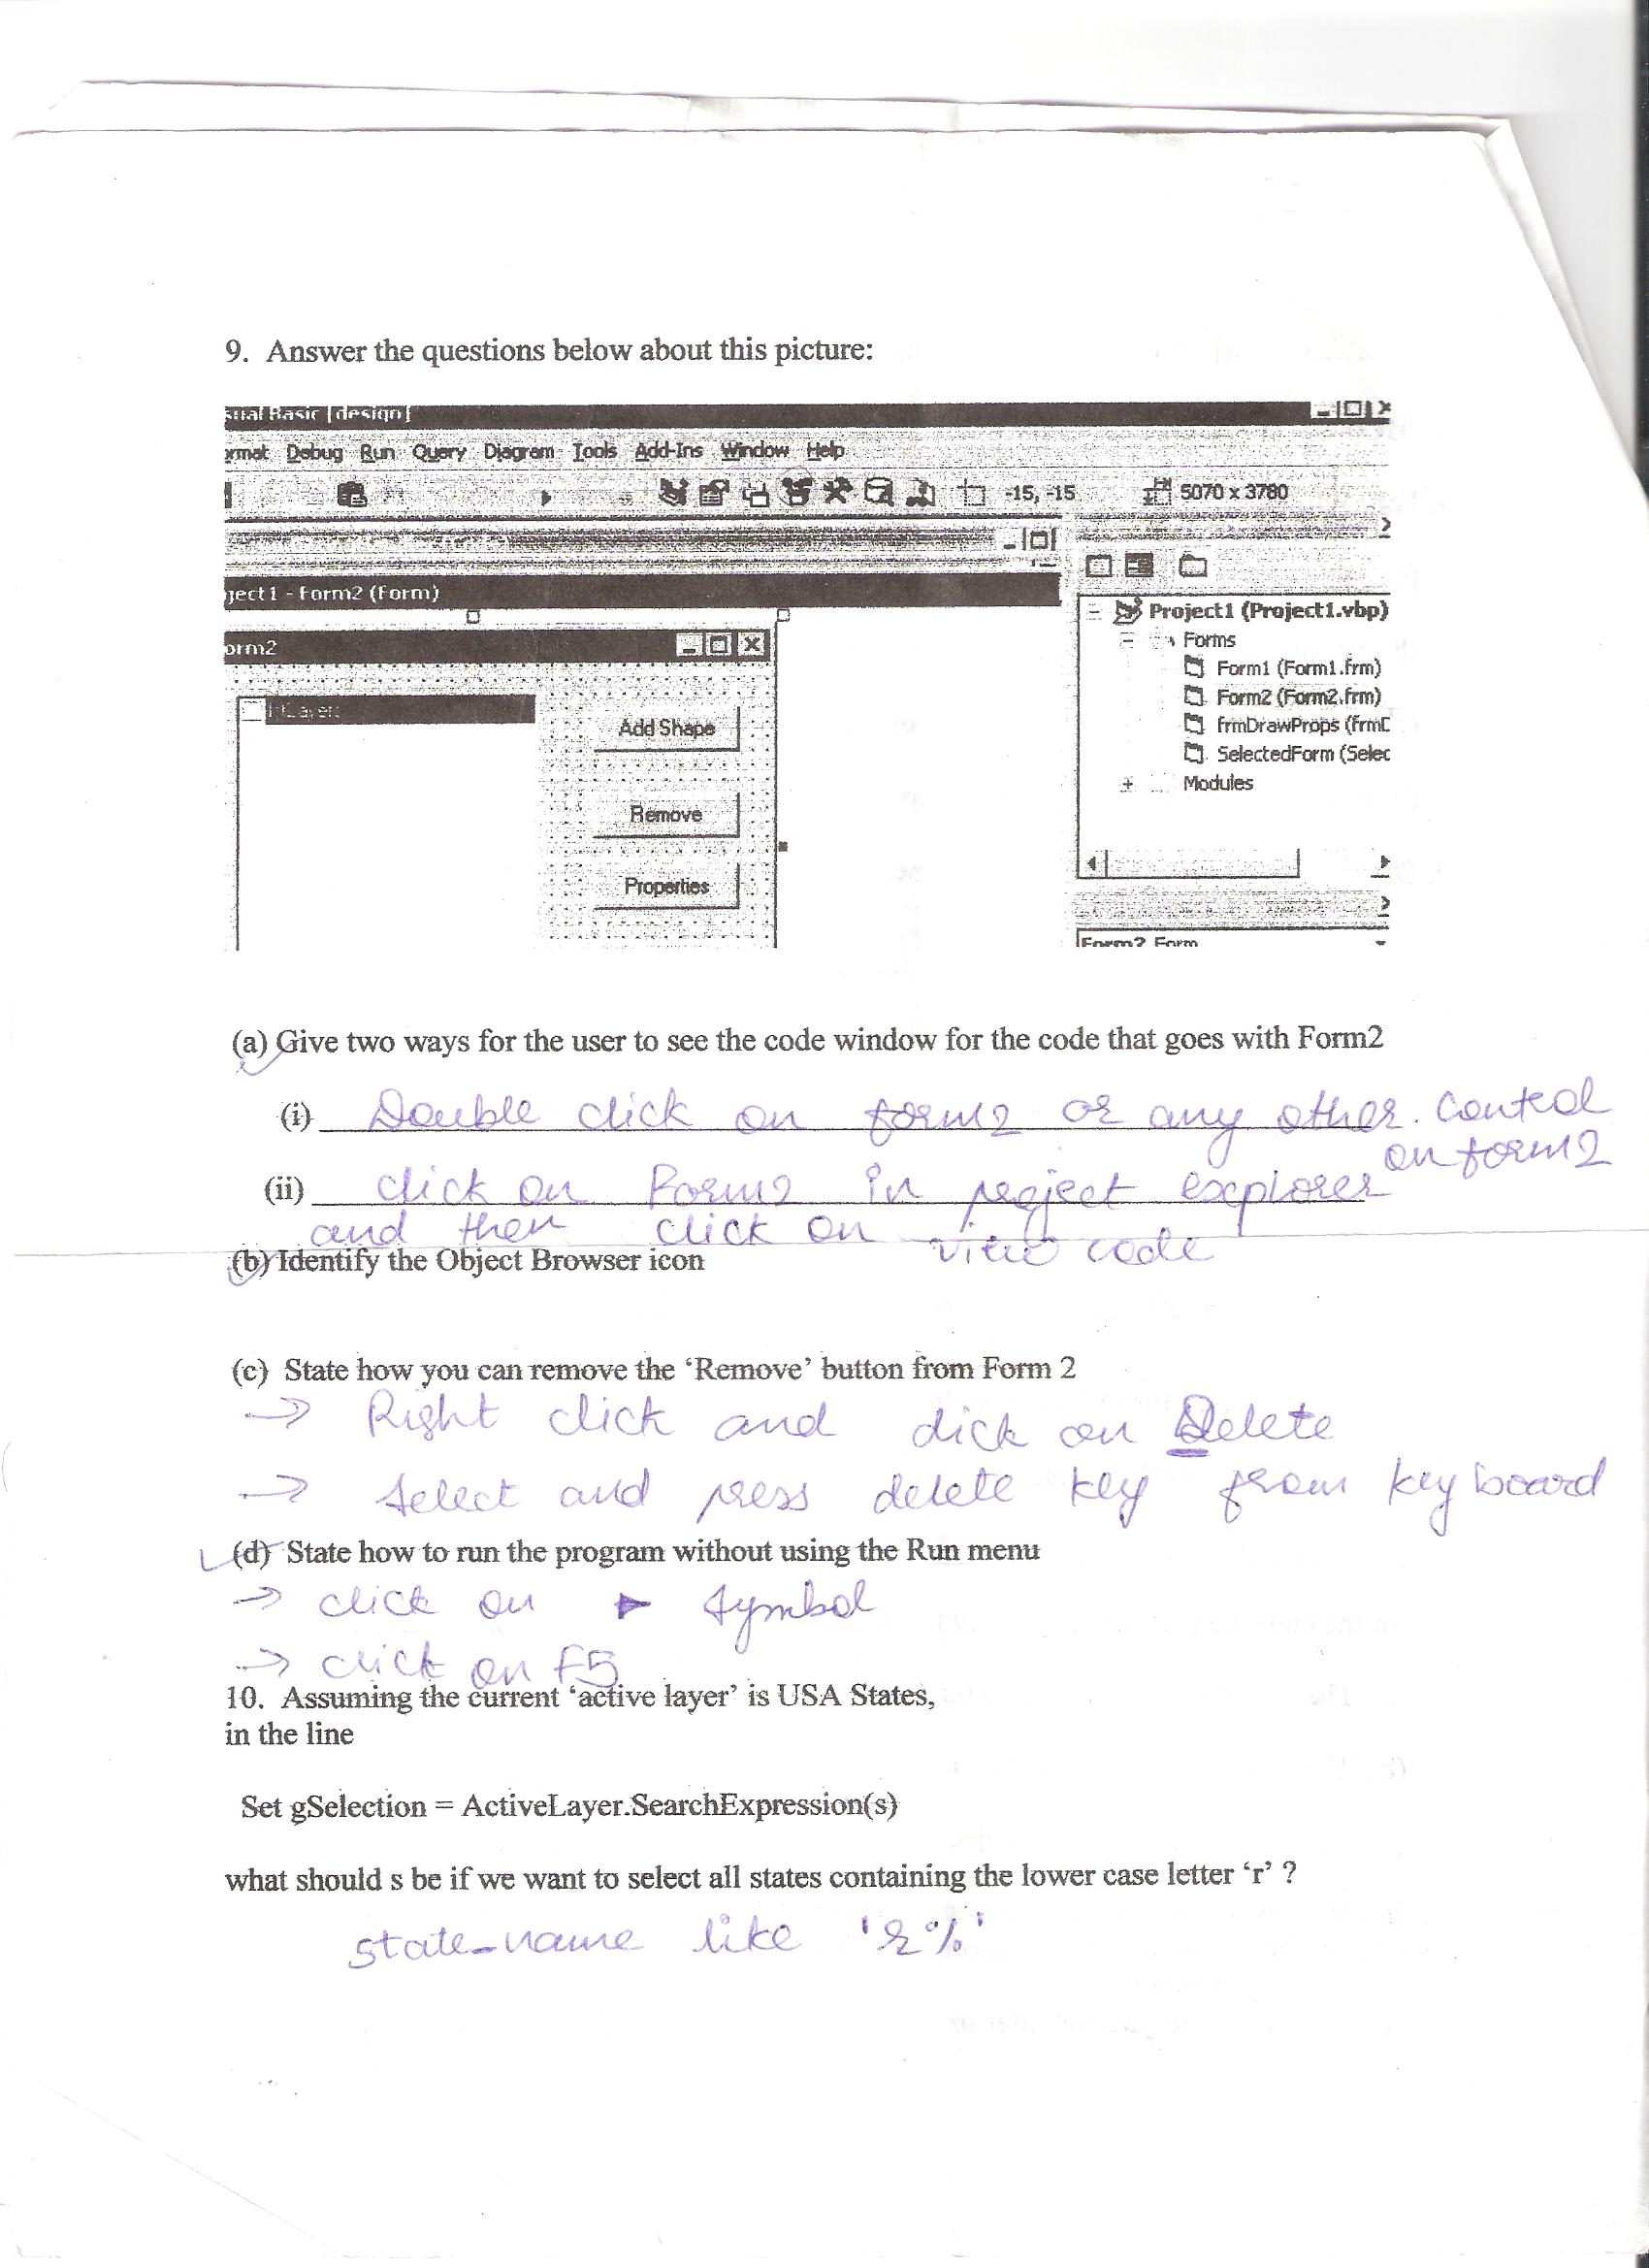 9. Answer the questions below about this picture:
sual Basic [design]
ormat Debug Run Query Diagram Tools Add-Ins Window Help
-15, -15 5070 x 3780
ject1 - Form2 (Form)
orm2
Add Shape
Remove
Properties
Project1 (Project1.vbp)
Forms
Form1 (Form1.frm)
Form2 (Form2.frm)
frmDrawProps (frmD
SelectedForm (Selec
Modules
Form2 Form
(a) Give two ways for the user to see the code window for the code that goes with Form2
(i) Double click on form2 or any other control
on form2
(ii) click on Form2 in project explorer
and then click on view code
(b) Identify the Object Browser icon
(c) State how you can remove the ‘Remove’ button from Form 2
→ Right click and click on Delete
→ Select and press delete key from key board
(d) State how to run the program without using the Run menu
→ click on ► symbol
→ click on F5
10. Assuming the current ‘active layer’ is USA States,
in the line
Set gSelection = ActiveLayer.SearchExpression(s)
what should s be if we want to select all states containing the lower case letter ‘r’ ?
state_name like 'r%'